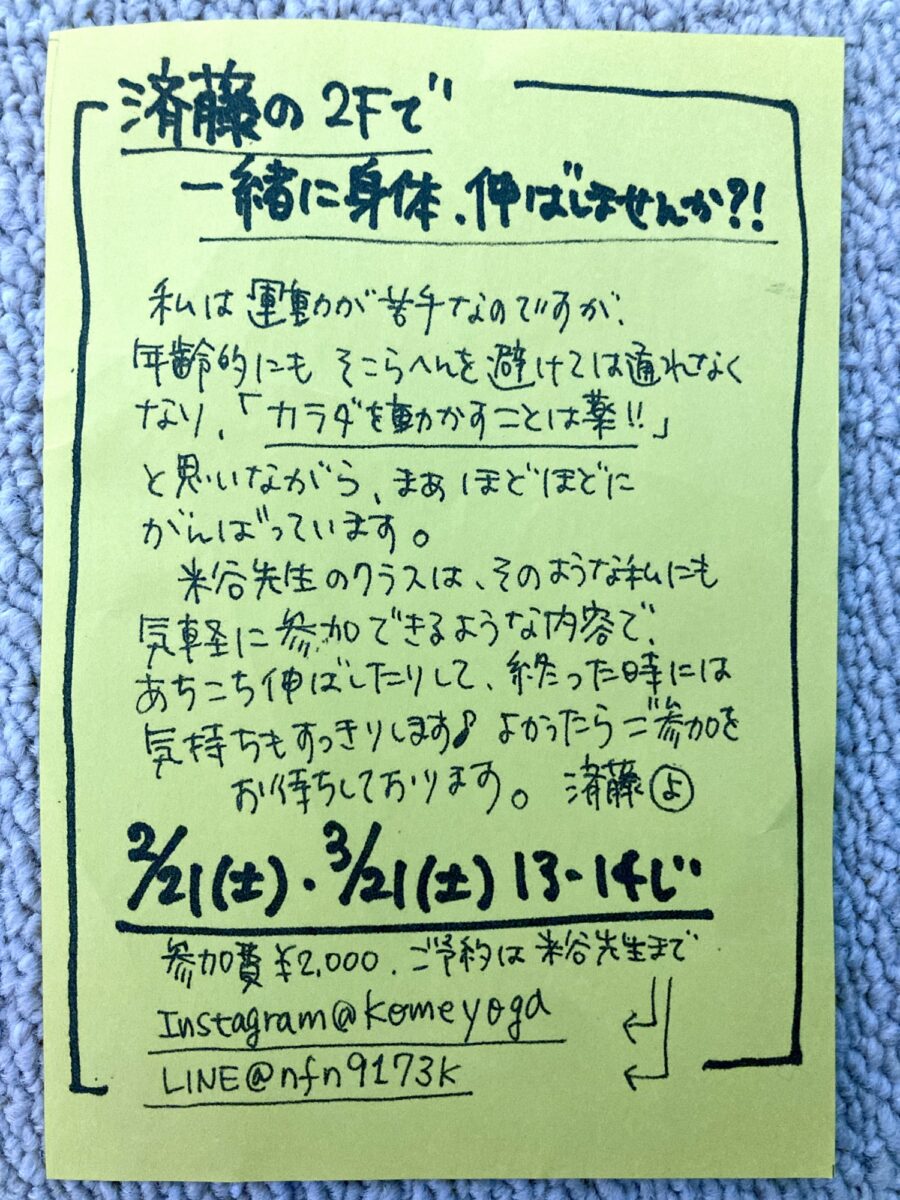 済藤の 2Fで
一緒に身体、伸ばしませんか?!
私は運動が苦手なのですが、
年齢的にも そこらへんを避けては通れなく
なり、「カラダを動かすことは薬!!」
と思いながら、まあ ほどほどに
がんばっています。
米谷先生のクラスは、そのような私にも
気軽に参加できるような内容で、
あちこち伸ばしたりして、終った時には
気持ちもすっきりします♪ よかったらご参加を
お待ちしております。 済藤 よ
2/21(土)・3/21(土) 13-14じ
参加費¥2,000. ご予約は米谷先生まで
Instagram@komeyoga
LINE@nfn9173k